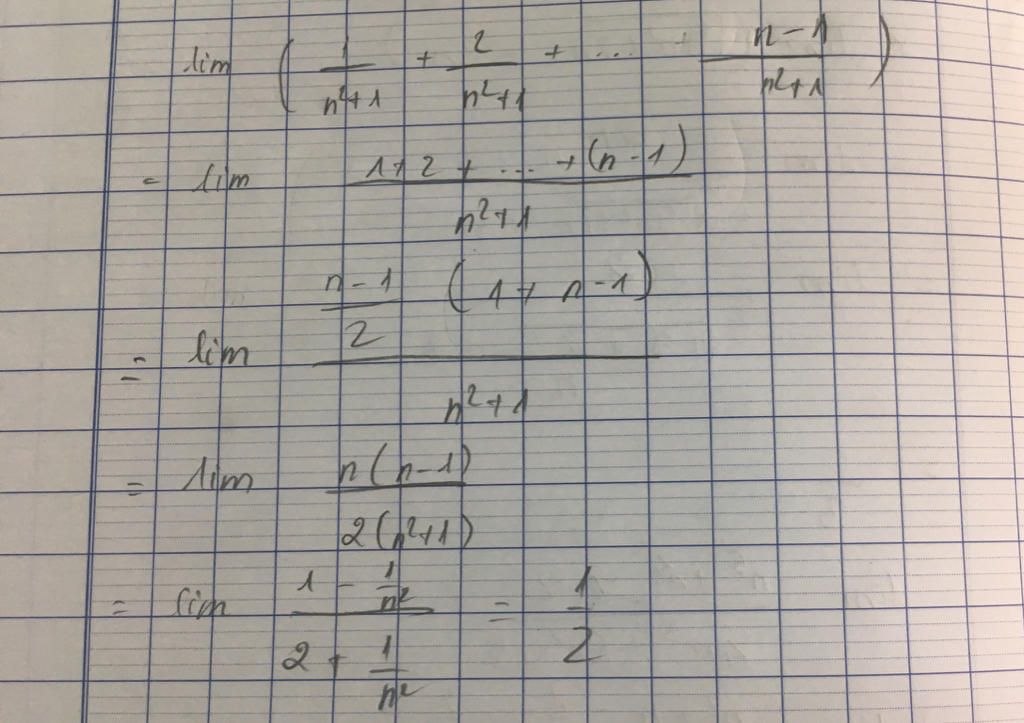 lim ( 1/(n²+1) + 2/(n²+1) + ... + (n-1)/(n²+1) )
= lim (1+2+...+(n-1))/(n²+1)
= lim ((n-1)/2 (1+n-1))/(n²+1)
= lim n(n-1)/(2(n²+1))
= lim (1 - 1/n²)/(2 + 1/n²) = 1/2